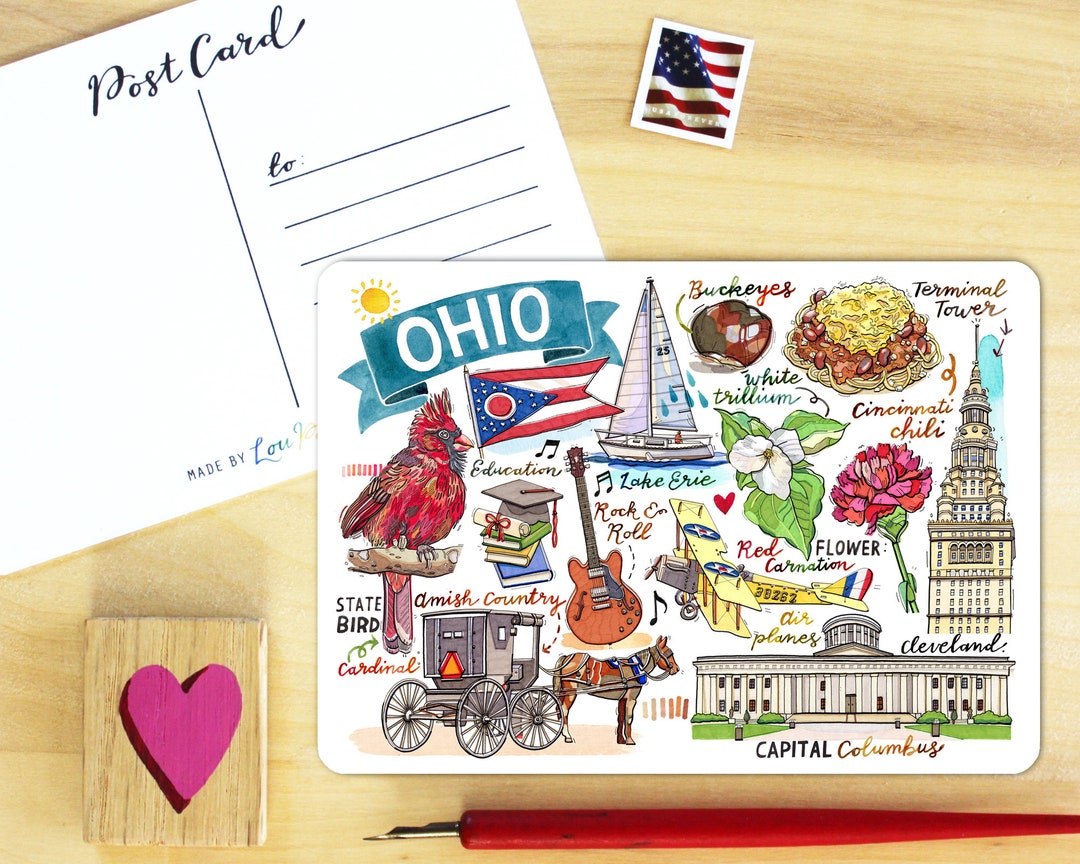 Post Card
to:
MADE BY Lou
USA FOREVER
OHIO
25
Buckeyes
Terminal
Tower
white
trillium
Cincinnati
chili
Education
Lake Erie
Rock &
Roll
Red
Carnation
FLOWER:
30262
STATE
BIRD
Cardinal
Amish Country
air
planes
cleveland.
CAPITAL Columbus